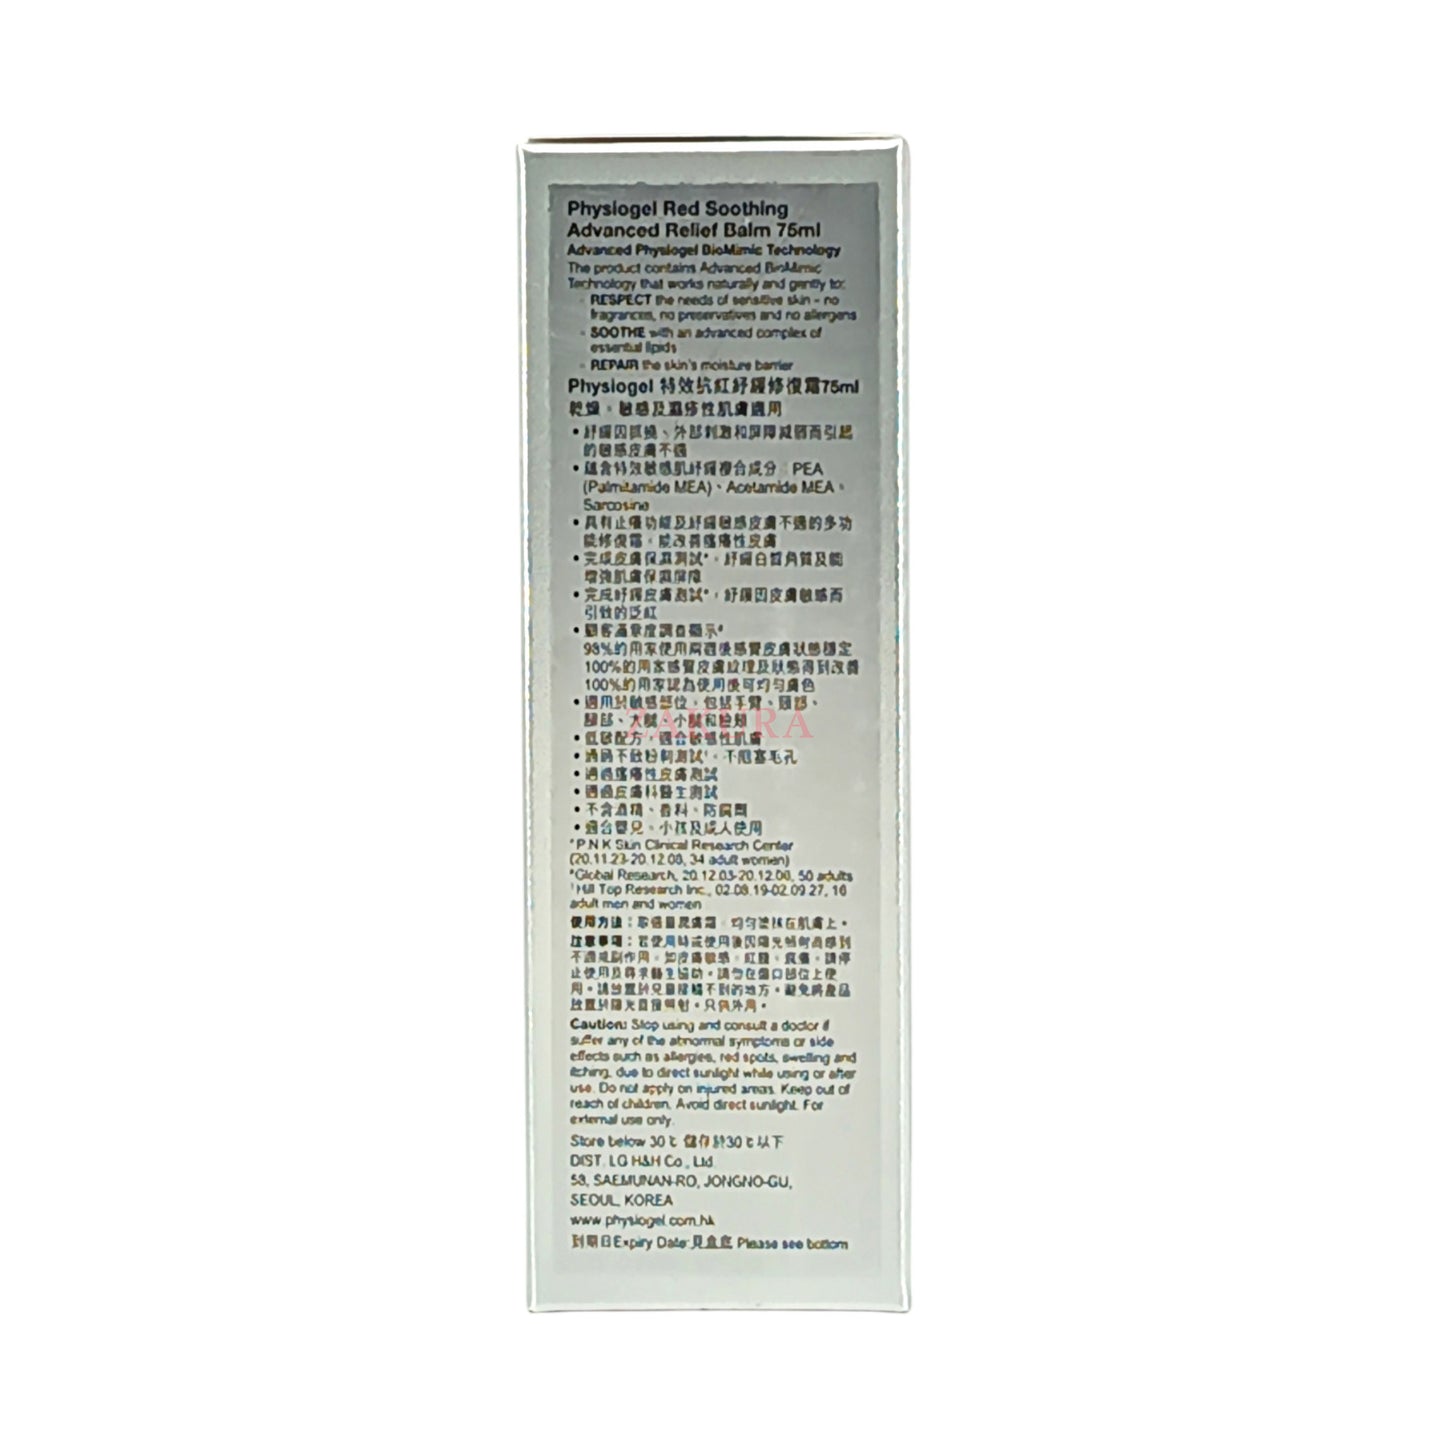 Physiogel Red Soothing
Advanced Relief Balm 75ml
Advanced Physiogel BioMimic Technology
The product contains Advanced BioMimic
Technology that works naturally and gently to:
- RESPECT the needs of sensitive skin - no
fragrances, no preservatives and no allergens
- SOOTHE with an advanced complex of
essential lipids
- REPAIR the skin's moisture barrier
Physiogel 特效抗紅紓緩修復霜75ml
乾燥、敏感及濕疹性肌膚適用
• 紓緩因抓撓、外部刺激和屏障減弱而引起
的敏感皮膚不適
• 蘊含特效敏感肌紓緩複合成分：PEA
(Palmitamide MEA)、Acetamide MEA、
Sarcosine
• 具有止癢功能及紓緩敏感皮膚不適的多功
能修復霜，能改善痕癢性皮膚
• 完成皮膚保濕測試*，紓緩白
角質及能
增強肌膚保濕屏障
• 完成紓緩皮膚測試*，紓緩因皮膚敏感而
引致的泛紅
• 顧客滿意度調查顯示#
98%的用家使用兩週後感覺皮膚狀態穩定
100%的用家感覺皮膚紋理及狀態得到改善
100%的用家認為使用後可均勻膚色
• 適用於敏感部位，包括手臂、頸部、
腿部、大腿、小腿和臉頰
ZAKURA
• 低敏配方，適合敏感性肌膚
• 通過不致粉刺測試†，不阻塞毛孔
• 通過痕癢性皮膚測試
• 通過皮膚科醫生測試
• 不含酒精、香料、防腐劑
• 適合嬰兒、小孩及成人使用
*P.N.K Skin Clinical Research Center
(20.11.23-20.12.08, 34 adult women)
#Global Research, 20.12.03-20.12.08, 50 adults
†Hill Top Research Inc., 02.08.19-02.09.27, 16
adult men and women
使用方法：取適量潤膚霜，均勻塗抹在肌膚上。
注意事項：若使用時或使用後因陽光照射而感到
不適或副作用，如皮膚敏感、紅腫、痕癢，請停
止使用及尋求醫生協助。請勿在傷口部位上使
用。請放置於兒童接觸不到的地方。避免將產品
放置於陽光直接照射。只供外用。
Caution: Stop using and consult a doctor if
suffer any of the abnormal symptoms or side
effects such as allergies, red spots, swelling and
itching, due to direct sunlight while using or after
use. Do not apply on injured areas. Keep out of
reach of children. Avoid direct sunlight. For
external use only.
Store below 30℃ 儲存於30℃以下
DIST. LG H&H Co., Ltd.
58, SAEMUNAN-RO, JONGNO-GU,
SEOUL, KOREA
www.physiogel.com.hk
到期日Expiry Date:見盒底 Please see bottom